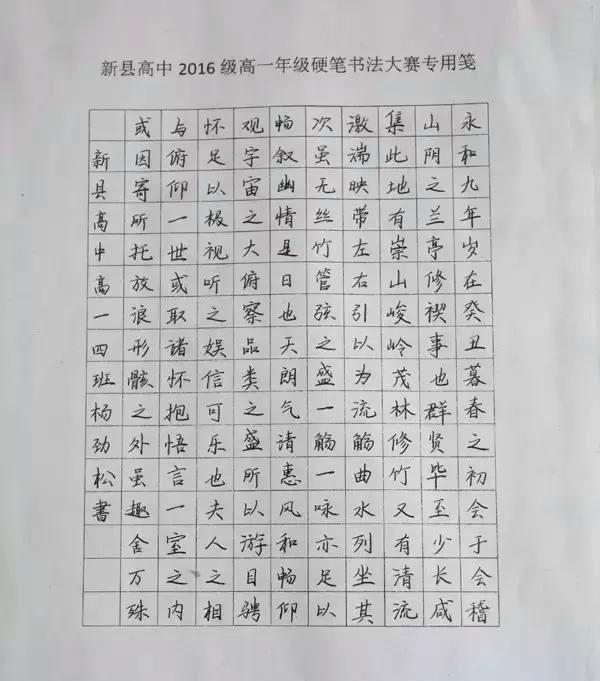 新县高中2016级高一年级硬笔书法大赛专用笺
永和九年岁在癸丑暮春之初会于会稽
山阴之兰亭修禊事也群贤毕至少长咸
集此地有崇山峻岭茂林修竹又有清流
激湍映带左右引以为流觞曲水列坐其
次虽无丝竹管弦之盛一觞一咏亦足以
畅叙幽情是日也天朗气清惠风和畅仰
观宇宙之大俯察品类之盛所以游目骋
怀足以极视听之娱信可乐也夫人之相
与俯仰一世或取诸怀抱悟言一室之内
或因寄所托放浪形骸之外虽趣舍万殊
新县高中高一四班杨劲松書